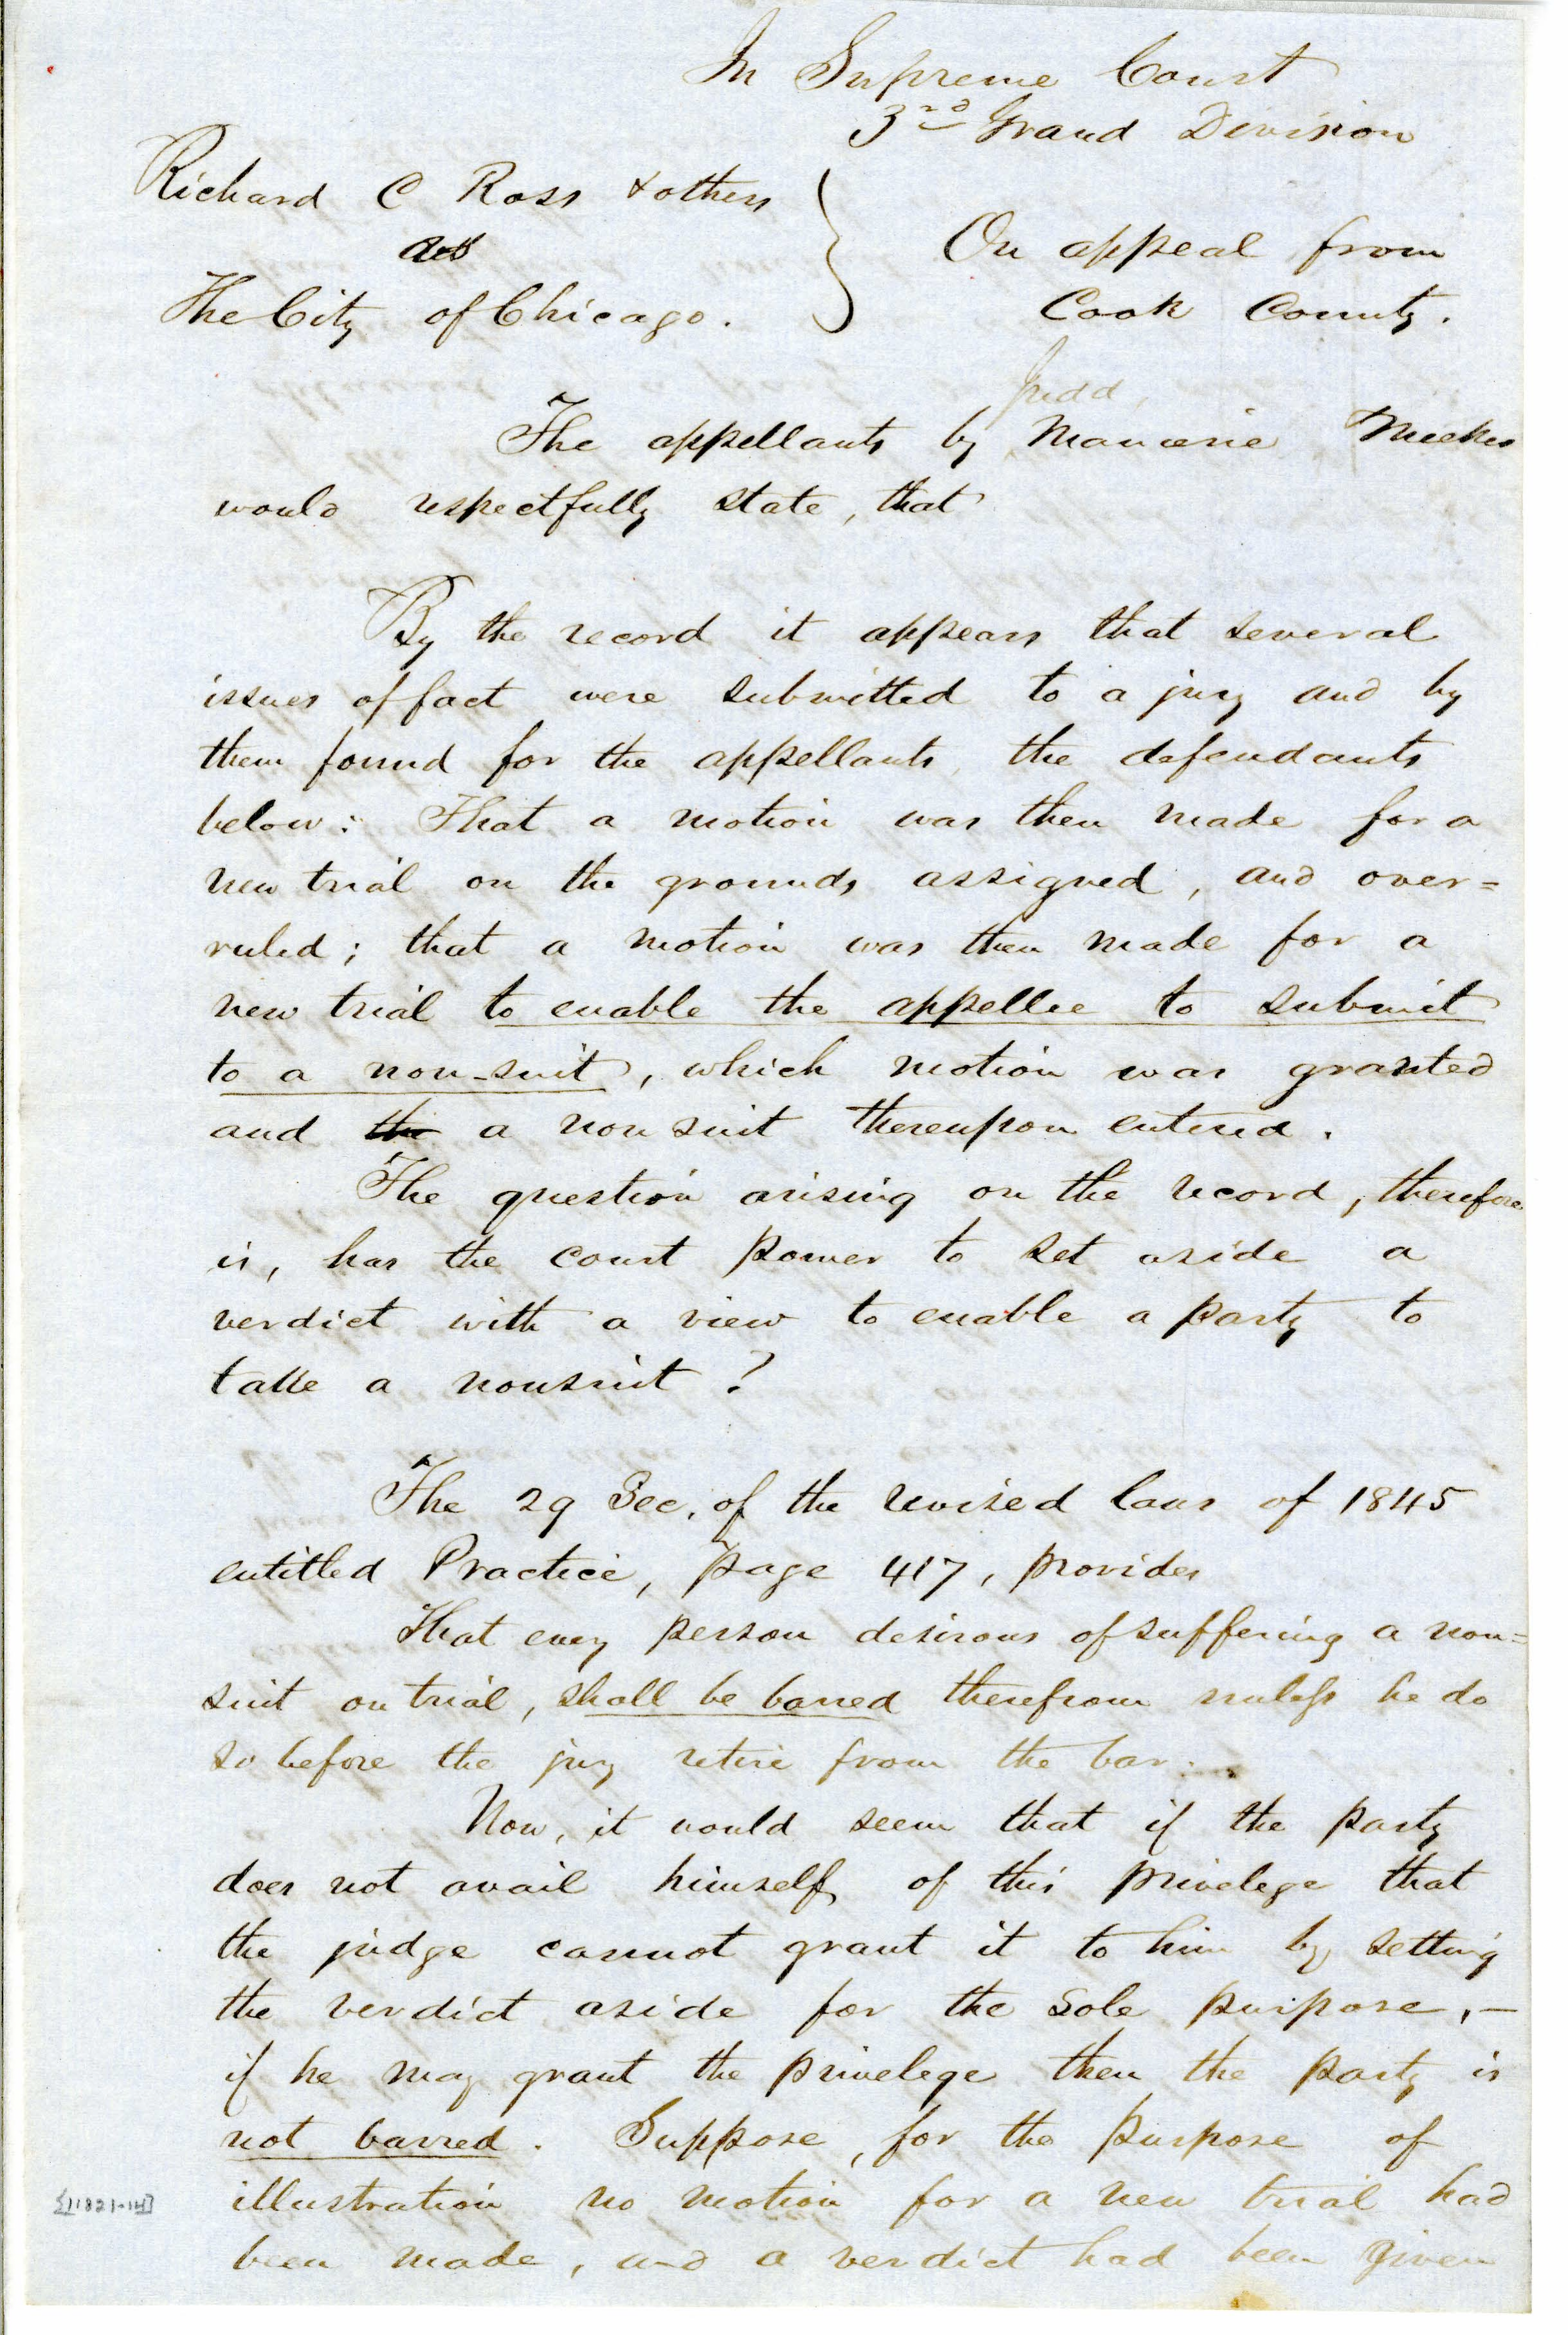 In Supreme Court
3rd Grand Division
Richard C Ross & others
ads
The City of Chicago.
On appeal from
Cook County.
Judd,
The appellants by Manierre Meeker
would respectfully state, that
By the record it appears that several
issues of fact were submitted to a jury and by
them found for the appellants, the defendants
below: That a motion was then made for a
new trial on the grounds assigned, and over=
ruled; that a motion was then made for a
new trial to enable the appellee to submit
to a non-suit, which motion was granted
and the a non suit thereupon entered.
The question arising on the record, therefore
is, has the court power to set aside a
verdict with a view to enable a party to
take a nonsuit?
The 29 Sec. of the revised laws of 1845
entitled Practice, page 417, provides
That every person desirous of suffering a non=
suit on trial, shall be barred therefrom unless he do
so before the jury retire from the bar.
Now, it would seem that if the party
does not avail himself of this privelege that
the judge cannot grant it to him by setting
the verdict aside for the sole purpose,—
if he may grant the privelege then the party is
not barred. Suppose, for the purpose of
illustration no motion for a new trial had
been made, and a verdict had been given
[11821-14]